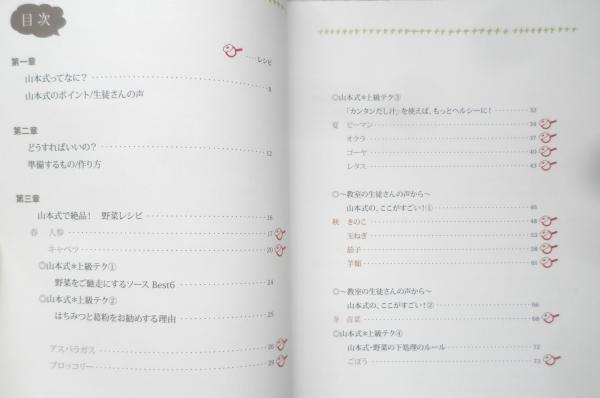 目次
‥‥レシピ
第一章
山本式ってなに?‥‥‥‥8
山本式のポイント/生徒さんの声
第二章
どうすればいいの?‥‥‥‥12
準備するもの/作り方
第三章
山本式で絶品! 野菜レシピ‥‥‥‥16
春 人参‥‥‥‥17
キャベツ‥‥‥‥20
◎山本式*上級テク①
野菜をご馳走にするソース Best6‥‥‥‥24
◎山本式*上級テク②
はちみつと葛粉をお勧めする理由‥‥‥‥25
アスパラガス‥‥‥‥26
ブロッコリー‥‥‥‥29
◎山本式*上級テク③
「カンタンだし汁」を使えば、もっとヘルシーに!‥‥‥‥32
夏 ピーマン‥‥‥‥34
オクラ‥‥‥‥37
ゴーヤ‥‥‥‥40
レタス‥‥‥‥43
◎〜教室の生徒さんの声から〜
山本式の、ここがすごい!①‥‥‥‥46
秋 きのこ‥‥‥‥48
玉ねぎ‥‥‥‥53
茄子‥‥‥‥58
芋類‥‥‥‥61
◎〜教室の生徒さんの声から〜
山本式の、ここがすごい!②‥‥‥‥66
冬 青菜‥‥‥‥68
◎山本式*上級テク④
山本式・野菜の下処理のルール‥‥‥‥72
ごぼう‥‥‥‥73